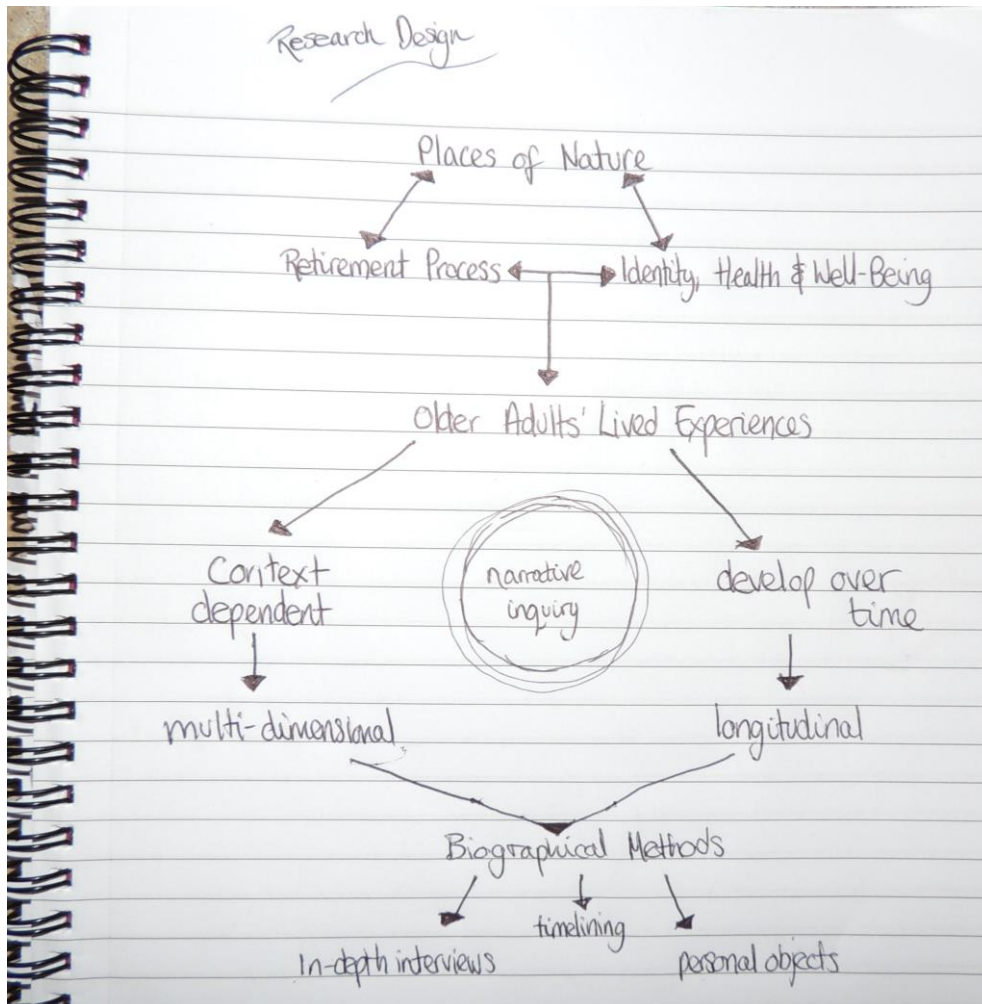 Research Design
Places of Nature
Retirement Process
Identity, Health & Well-Being
Older Adults' Lived Experiences
Context
dependent
narrative
inquiry
develop over
time
multi-dimensional
longitudinal
Biographical Methods
timelining
In-depth interviews
personal objects